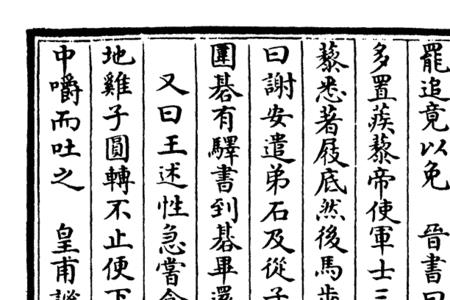 罷追竟以免　晉書曰
多置蒺藜帝使軍士三
藜悉著屐底然後馬步
曰謝安遣弟石及從子
圍碁有驛書到碁畢還
又曰王述性急嘗食
地雞子圓轉不止便下
中嚼而吐之　皇甫謐